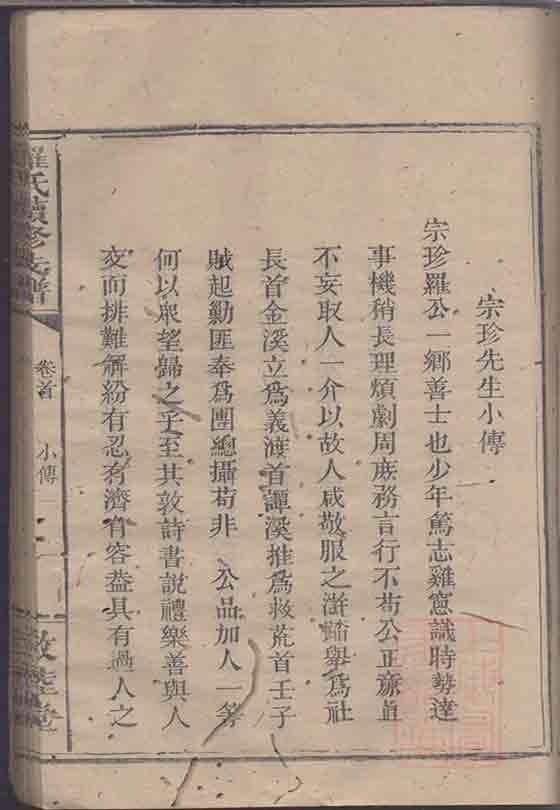 宗珍先生小傳
宗珍羅公一鄉善士也少年篤志雞窓識時勢達
事機稍長理煩劇周庶務言行不苟公正廉貞
不妄取人一介以故人咸敬服之澍舉爲社
長首金溪立爲義渡首譚溪推爲救荒首壬子
賊起勦匪奉爲團總攝苟非 公品加人一等
何以衆望歸之乎至其敦詩書說禮樂善與人
交而排難解紛有忍有濟有容益具有過人之
羅氏續修族譜
卷首
小傳
敦睦堂